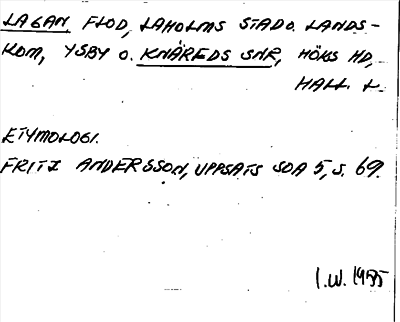 LAGAN FLOD, LAHOLMS STAD O. LANDS-
KOM, YSBY O. KNÄREDS SNR, HÖKS HD,
HALL. L.
ETYMOLOGI.
FRITZ ANDERSSON, UPPSATS SOA 5, S. 69.
I.W. 1955